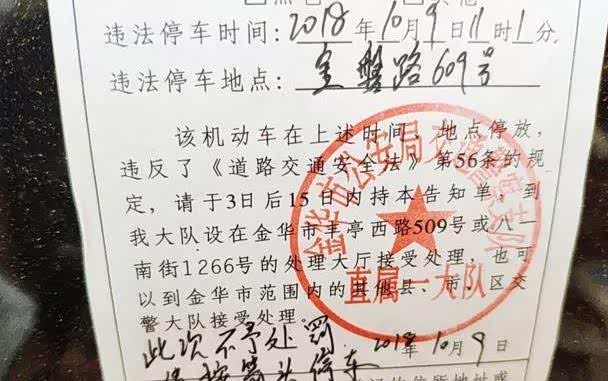 违法停车时间：2018年10月9日11时1分
违法停车地点：金磐路609号
该机动车在上述时间、地点停放，
违反了《道路交通安全法》第56条的规
定，请于3日后15日内持本告知单，到
我大队设在金华市丰亭西路509号或八一
南街1266号的处理大厅接受处理，也可
以到金华市范围内的其他县、市、区交
警大队接受处理。
金华市公安局交通警察支队
直属一大队
此次不予处罚
2018年10月9日
请按箭头停车